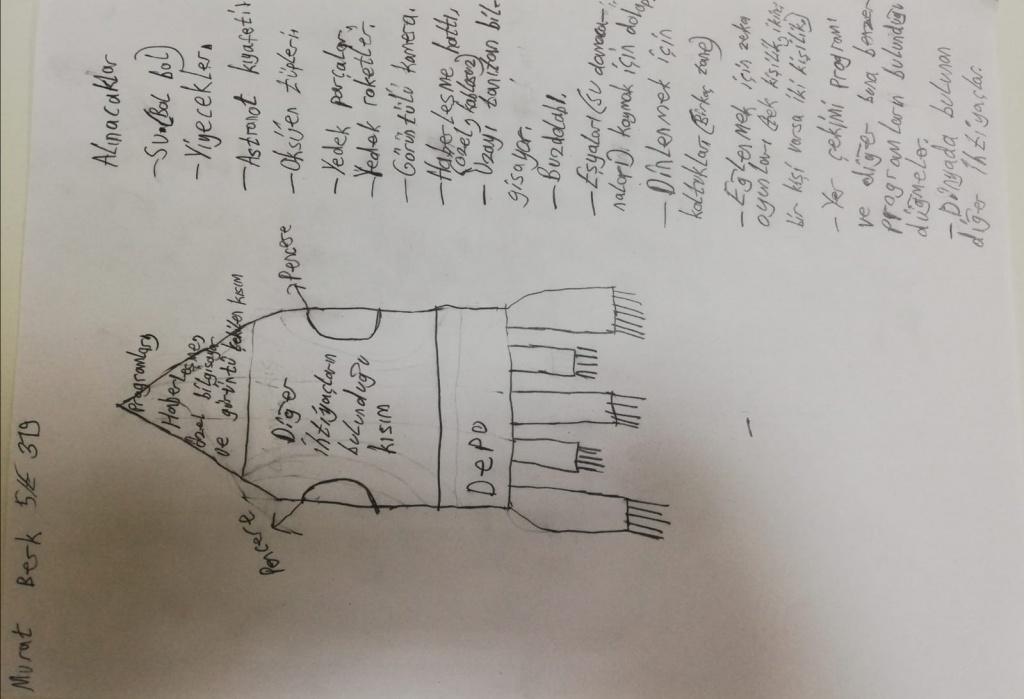 Murat Berk 5/E 319
Alınacaklar
- Su (Bol bol)
- Yiyecekler.
- Astronot kıyafeti
- Oksijen tüpleri
- Yedek parçalar.
- Yedek roketler.
- Görüntülü kamera.
- Haberleşme hattı,
(özel,
- Uzayı tanıtan bil-
gisayar.
- Buzdolabı.
- Eşyaları (Su damaca-
naları) koymak için dolap
- Dinlenmek için
koltuklar (Birkaç tane)
- Eğlenmek için zeka
oyunları (tek kişilik, ikinci
bir kişi varsa iki kişilik)
- Yer çekimi programı
ve diğer buna benzer
programların bulunduğu
düğmeler.
- Dünyada bulunan
diğer ihtiyaçlar.
Programlar,
Haberleşme,
özel bilgisayar
ve görüntü çekilen kısım
Pencere
Pencere
Diğer
ihtiyaçların
bulunduğu
kısım
Depo